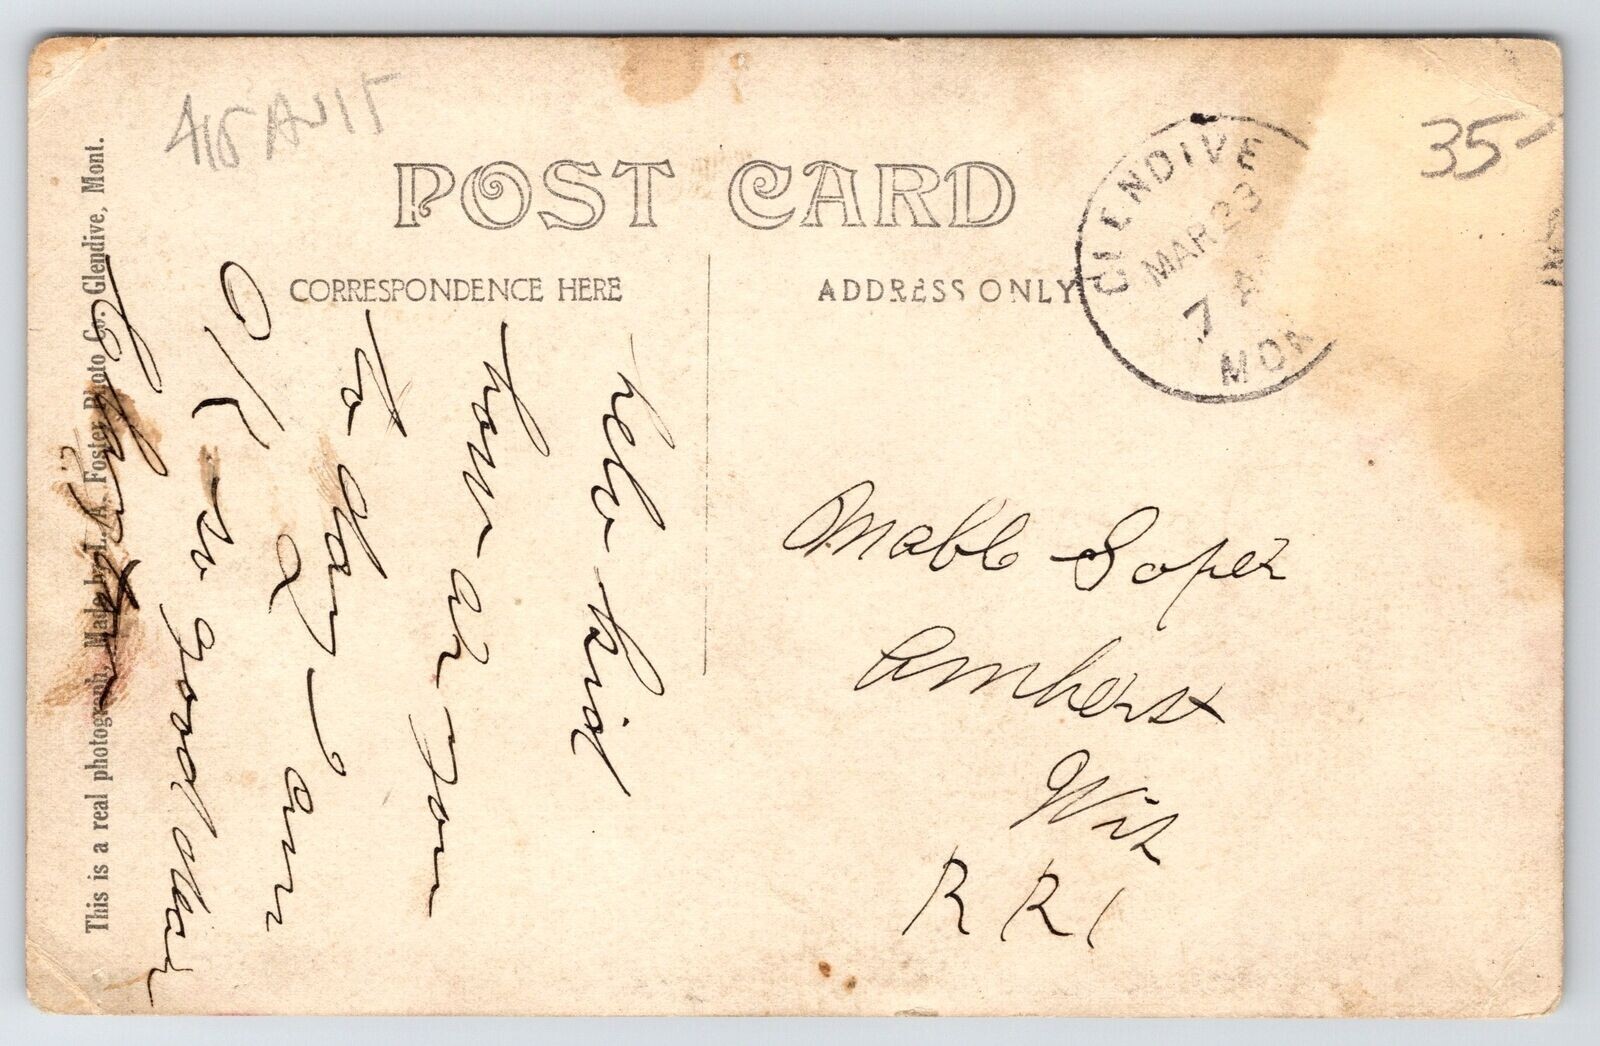 POST CARD
CORRESPONDENCE HERE
ADDRESS ONLY
GLENDIVE
MAR 23
7 A
MON
35-
helo kid
how ar you
to day - I am
OK - so good
Mable Soper
Amherst
Wis
R R 1
This is a real photograph, Made by L. A. Foster Photo Co. Glendive, Mont.